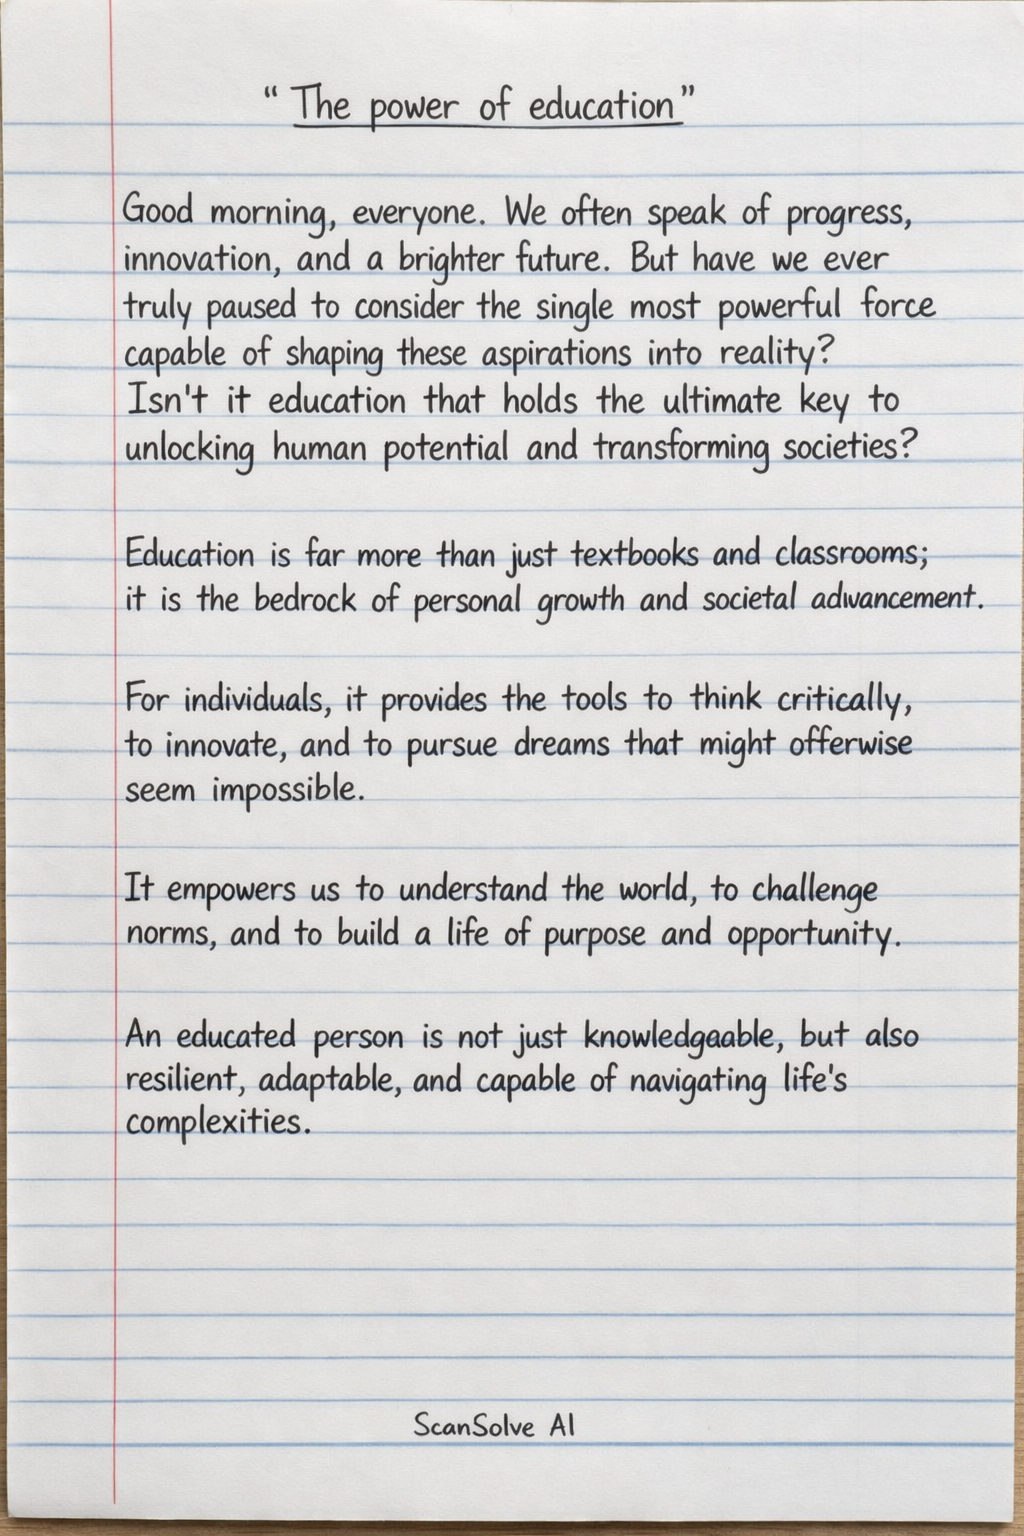 “The power of education”
Good morning, everyone. We often speak of progress,
innovation, and a brighter future. But have we ever
truly paused to consider the single most powerful force
capable of shaping these aspirations into reality?
Isn't it education that holds the ultimate key to
unlocking human potential and transforming societies?
Education is far more than just textbooks and classrooms;
it is the bedrock of personal growth and societal adwancement.
For individuals, it provides the tools to think critically,
to innovate, and to pursue dreams that might offerwise
seem impossible.
It empowers us to understand the world, to challenge
norms, and to build a life of purpose and opportunity.
An educated person is not just knowledgaable, but also
resilient, adaptable, and capable of navigating life's
complexities.
ScanSolve AI